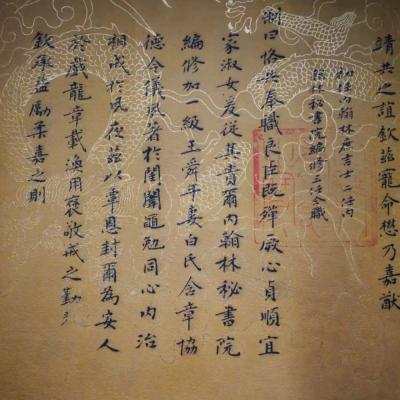 靖共之誼欽茲寵命懋乃嘉猷
初任內翰林庶吉士二任內
翰林秘書院編修三任今職
制曰恪共奉職良臣既殫厥心貞順宜
家淑女爰從其貴爾內翰林秘書院
編修加一級王舜年妻白氏含章協
德令儀夙著於閨闥黽勉同心內治
相成於夙夜茲以覃恩封爾為安人
於戲龍章載渙用褒敬戒之勤
欽承益勵柔嘉之則